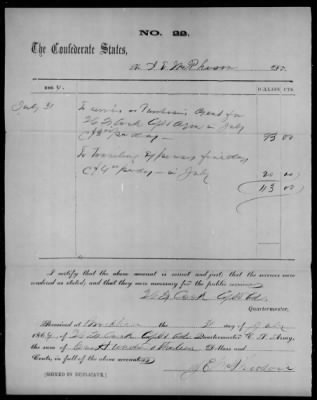 NO. 22.
The Confederate States,
To J. E. McPherson DR.
186 .
DOLLARS. CTS.
July 31
To services as Purchasing Agent for
in July
@ $3 00 per day — 93 00
To Traveling Expenses five days
@ $4 00 per day — in July 20 00
113 00
I certify that the above account is correct and just; that the services were
rendered as stated, and that they were necessary for the public service.
Quartermaster.
Received at the 31 day of July
1864, of Quartermaster C. S. Army,
the sum of One Hundred & thirteen Dollars and
Cents, in full of the above account.
J. E. McPherson
[SIGNED IN DUPLICATE.]